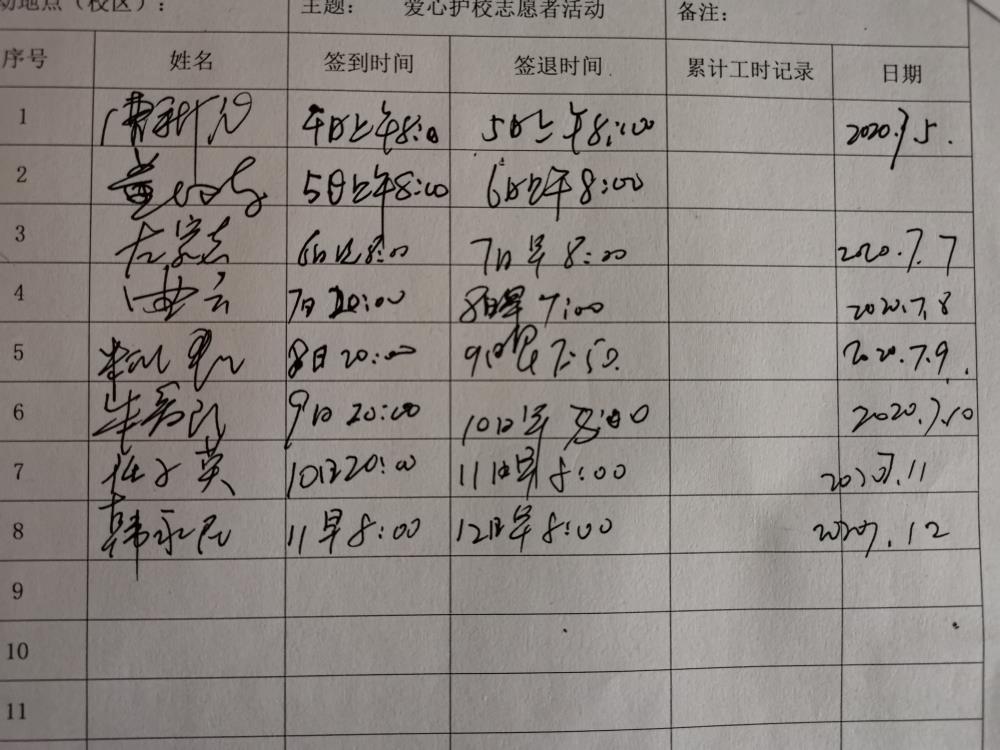 动地点（校区）： 主题： 爱心护校志愿者活动 备注：
序号 姓名 签到时间 签退时间 累计工时记录 日期
1 4日上午8:00 5日上午8:00 2020.7.5.
2 5日上午8:00 6日上午8:00
3 6日 8:00 7日早8:00 2020.7.7
4 曲云 7日20:00 8日早7:00 2020.7.8
5 8日20:00 7:50. 2020.7.9.
6 9日20:00 10日早8:00 2020.7.10
7 英 10日20:00 11日早8:00 2020.7.11
8 韩永民 11早8:00 12日早8:00 2020.7.12
9
10
11